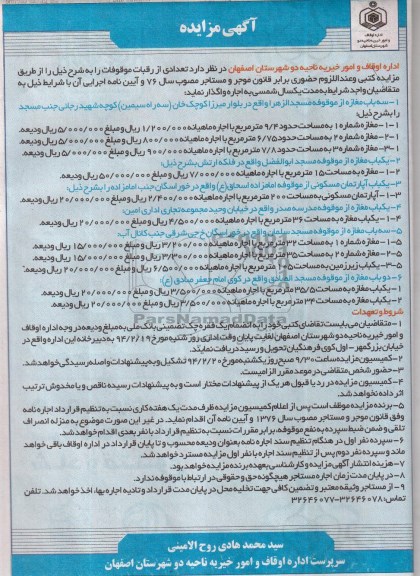 آگهی مزایده
اداره اوقاف و امور خیریه ناحیه دو شهرستان اصفهان در نظر دارد تعدادی از رقبات موقوفات را به شرح ذیل را از طریق
مزایده کتبی وعنداللزوم حضوری برابر قانون موجر و مستاجر مصوب سال ۷۶ و آیین نامه اجرایی آن با شرایط ذیل به
متقاضیان واجد شرایط به مدت یکسال شمسی به اجاره واگذار نماید:
۱- سه باب مغازه از موقوفه مسجد الزهرا واقع در بلوار میرزا کوچک خان (سه راه سیمین) کوچه شهید رجائی جنب مسجد
را بشرح ذیل:
۱-۱- مغازه شماره ۱ به مساحت حدود ۹/۴ مترمربع با اجاره ماهیانه ۱/۲۰۰/۰۰۰ ریال و مبلغ ۵/۰۰۰/۰۰۰ ریال ودیعه.
۱-۲- مغازه شماره ۲ به مساحت حدود ۶/۷۵ مترمربع با اجاره ماهیانه ۸۰۰/۰۰۰ ریال و مبلغ ۵/۰۰۰/۰۰۰ ریال ودیعه.
۱-۳- مغازه شماره ۳ به مساحت حدود ۷/۸ مترمربع با اجاره ماهیانه ۹۰۰/۰۰۰ ریال و مبلغ ۵/۰۰۰/۰۰۰ ریال ودیعه.
۲- یکباب مغازه از موقوفه مسجد ابوالفضل واقع در فلکه ارتش بشرح ذیل:
۲-۱- مغازه به مساحت ۱۵ مترمربع با اجاره ماهیانه ۷/۰۰۰/۰۰۰ ریال و مبلغ ۵۰/۰۰۰/۰۰۰ ریال ودیعه.
۳- یکباب آپارتمان مسکونی از موقوفه امامزاده اسحاق (ع) واقع در خوراسگان جنب امامزاده را بشرح ذیل:
۳-۱- آپارتمان مسکونی به مساحت ۲۰۰ مترمربع با اجاره ماهیانه ۲/۴۰۰/۰۰۰ ریال و مبلغ ۲۰/۰۰۰/۰۰۰ ریال ودیعه.
۴- یکباب مغازه از موقوفه مدرسه صدر واقع در خیابان وحید مجموعه تجاری اداری امین:
۴-۱- یکباب مغازه به مساحت ۳۶ مترمربع با اجاره ماهیانه ۴/۵۰۰/۰۰۰ ریال و مبلغ ۲۰/۰۰۰/۰۰۰ ریال ودیعه.
۵- سه باب مغازه از موقوفه مسجد سلمان واقع در خوراسگان خ جی شرقی جنب کانال آب.
۵-۱- مغازه شماره ۱ به مساحت ۳۲ مترمربع با اجاره ماهیانه ۳/۲۰۰/۰۰۰ ریال و مبلغ ۱۵/۰۰۰/۰۰۰ ریال ودیعه.
۵-۲- مغازه شماره ۲ به مساحت ۳۵ مترمربع با اجاره ماهیانه ۳/۳۰۰/۰۰۰ ریال و مبلغ ۱۵/۰۰۰/۰۰۰ ریال ودیعه.
۵-۳- یکباب زیرزمین به مساحت مترمربع با اجاره ماهیانه ۶/۵۰۰/۰۰۰ ریال و مبلغ ۲۰/۰۰۰/۰۰۰ ریال ودیعه.
۶- دو باب مغازه از موقوفه مسجد الصادق واقع در کوی امام جعفر صادق (ع)
۶-۱- یکباب مغازه به مساحت ۳۵/۵ مترمربع با اجاره ماهیانه ۳/۵۰۰/۰۰۰ ریال و مبلغ ۲۰/۰۰۰/۰۰۰ ریال ودیعه.
۶-۲- یکباب مغازه به مساحت ۳۴ مترمربع با اجاره ماهیانه ۳/۵۰۰/۰۰۰ ریال و مبلغ ۲۰/۰۰۰/۰۰۰ ریال ودیعه.
ParsNamadData
شروط و تعهدات
۱- متقاضیان می بایست تقاضای کتبی خود را به انضمام یک فقره چک تضمینی بانک ملی به مبلغ ودیعه در وجه اداره اوقاف
و امور خیریه ناحیه دو شهرستان اصفهان لغایت پایان وقت اداری روز شنبه مورخ ۹۴/۲/۱۹ به دبیرخانه این اداره واقع در
خیابان بزرگمهر - اول کوی فرهنگیان تحویل و رسید دریافت نمایند.
۲- کمیسیون مزایده ساعت ۹/۳۰ صبح روز یکشنبه مورخ ۹۴/۲/۲۰ تشکیل و به پیشنهادات واصله رسیدگی خواهد شد.
۳- حضور شخص متقاضی در موعد مقرر الزامیست.
۴- کمیسیون مزایده در رد یا قبول هر یک از پیشنهادات مختار است و به پیشنهادات رسیده ناقص و یا مخدوش ترتیب
اثر داده نخواهد شد.
۵- برنده مزایده موظف است پس از اعلام کمیسیون مزایده ظرف مدت یک هفته کاری نسبت به تنظیم قرارداد اجاره نامه
وفق قانون موجر و مستاجر مصوب سال ۱۳۷۶ و آیین نامه آن اقدام نماید. در غیر این صورت موضوع به منزله انصراف
تلقی و ضمن ضبط سپرده به نفع موقوفه، برابر مقررات نسبت به تنظیم قرارداد با نفر بعدی اقدام خواهد شد.
۶- سپرده نفر اول در هنگام تنظیم سند اجاره نامه بعنوان ودیعه محسوب و تا پایان قرارداد در اداره اوقاف باقی خواهد
ماند و سپرده نفر دوم پس از تنظیم سند اجاره با نفر اول مزایده مسترد خواهد شد.
۷- هزینه انتشار آگهی مزایده و کارشناسی بعهده برنده مزایده خواهد بود.
۸- در پایان مدت زمان اجاره مستاجر هیچگونه حق و حقوقی در ارتباط با موقوفه ندارد.
۹- از مستاجر وثیقه معتبر و تضمین کافی جهت تخلیه محل در پایان مدت قرارداد و تادیه اجاره بها، اخذ خواهد شد. تلفن
تماس: ۳۲۶۴۶۰۷۸-۳۲۶۴۶۰۷۷
سید محمد هادی روح الامینی
سرپرست اداره اوقاف و امور خیریه ناحیه دو شهرستان اصفهان